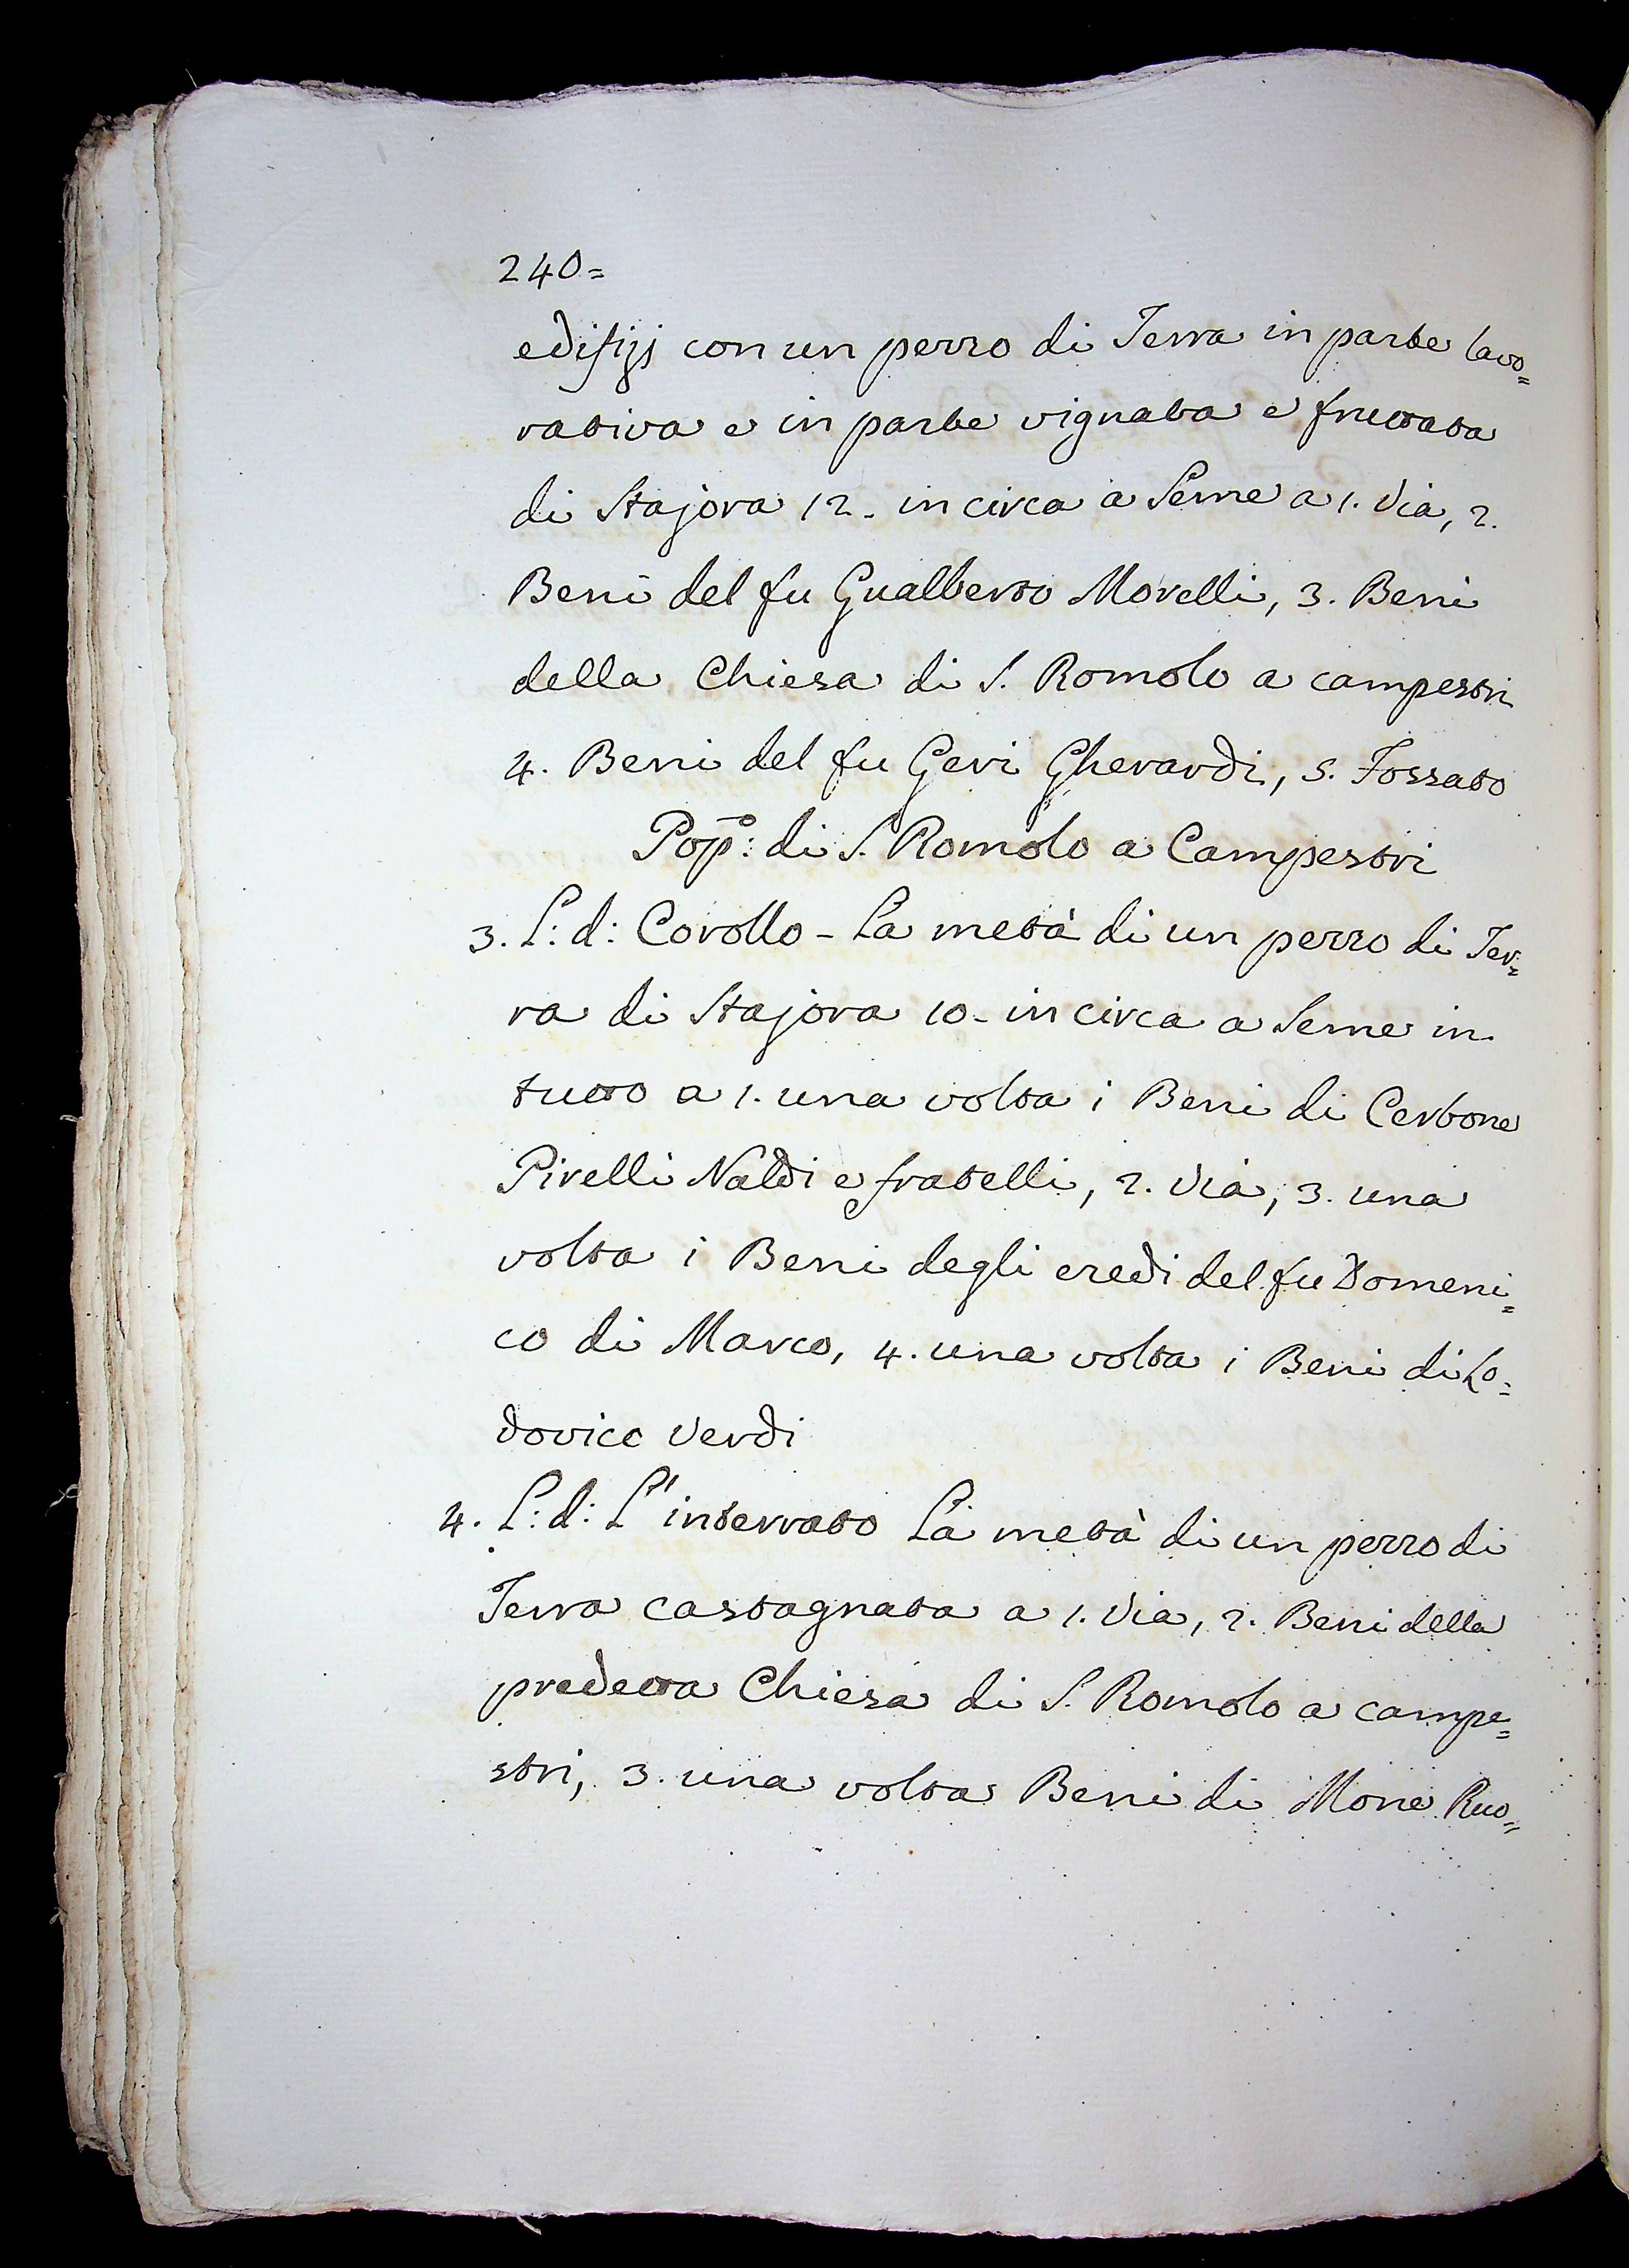 240=
edifizj con un pezzo di Terra in parte lavo=
rativa e in parte vignata e fruttata
di Stajora 12 - in circa a Seme a 1. Via, 2.
Beni del fu Gualberto Morelli, 3. Beni
della Chiesa di S. Romolo a campestri
4. Beni del fu Geri Gherardi, 5. Fossato
Pop:º di S. Romolo a Campestri
3. L: d: Corollo - La metà di un pezzo di Ter=
ra di Stajora 10 - in circa a Seme in
tutto a 1. una volta i Beni di Cerbone
Pirelli Naldi e fratelli, 2. Via, 3. una
volta i Beni degli eredi del fu Domeni=
co di Marco, 4. una volta i Beni di Lo=
dovico Verdi
4. L: d: L'interrato La metà di un pezzo di
Terra castagnata a 1. Via, 2. Beni della
predetta Chiesa di S. Romolo a campe=
stri, 3. una volta Beni di Mone Ruo=